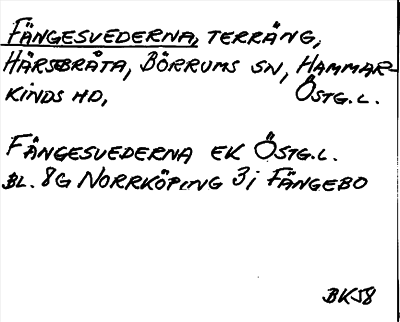 FÄNGESVEDERNA, TERRÄNG,
HÄRSBRÅTA, BÖRRUMS SN, HAMMAR-
KINDS HD, ÖSTG.L.
FÄNGESVEDERNA EK ÖSTG.L.
BL. 8G NORRKÖPING 3i FÄNGEBO
BK58